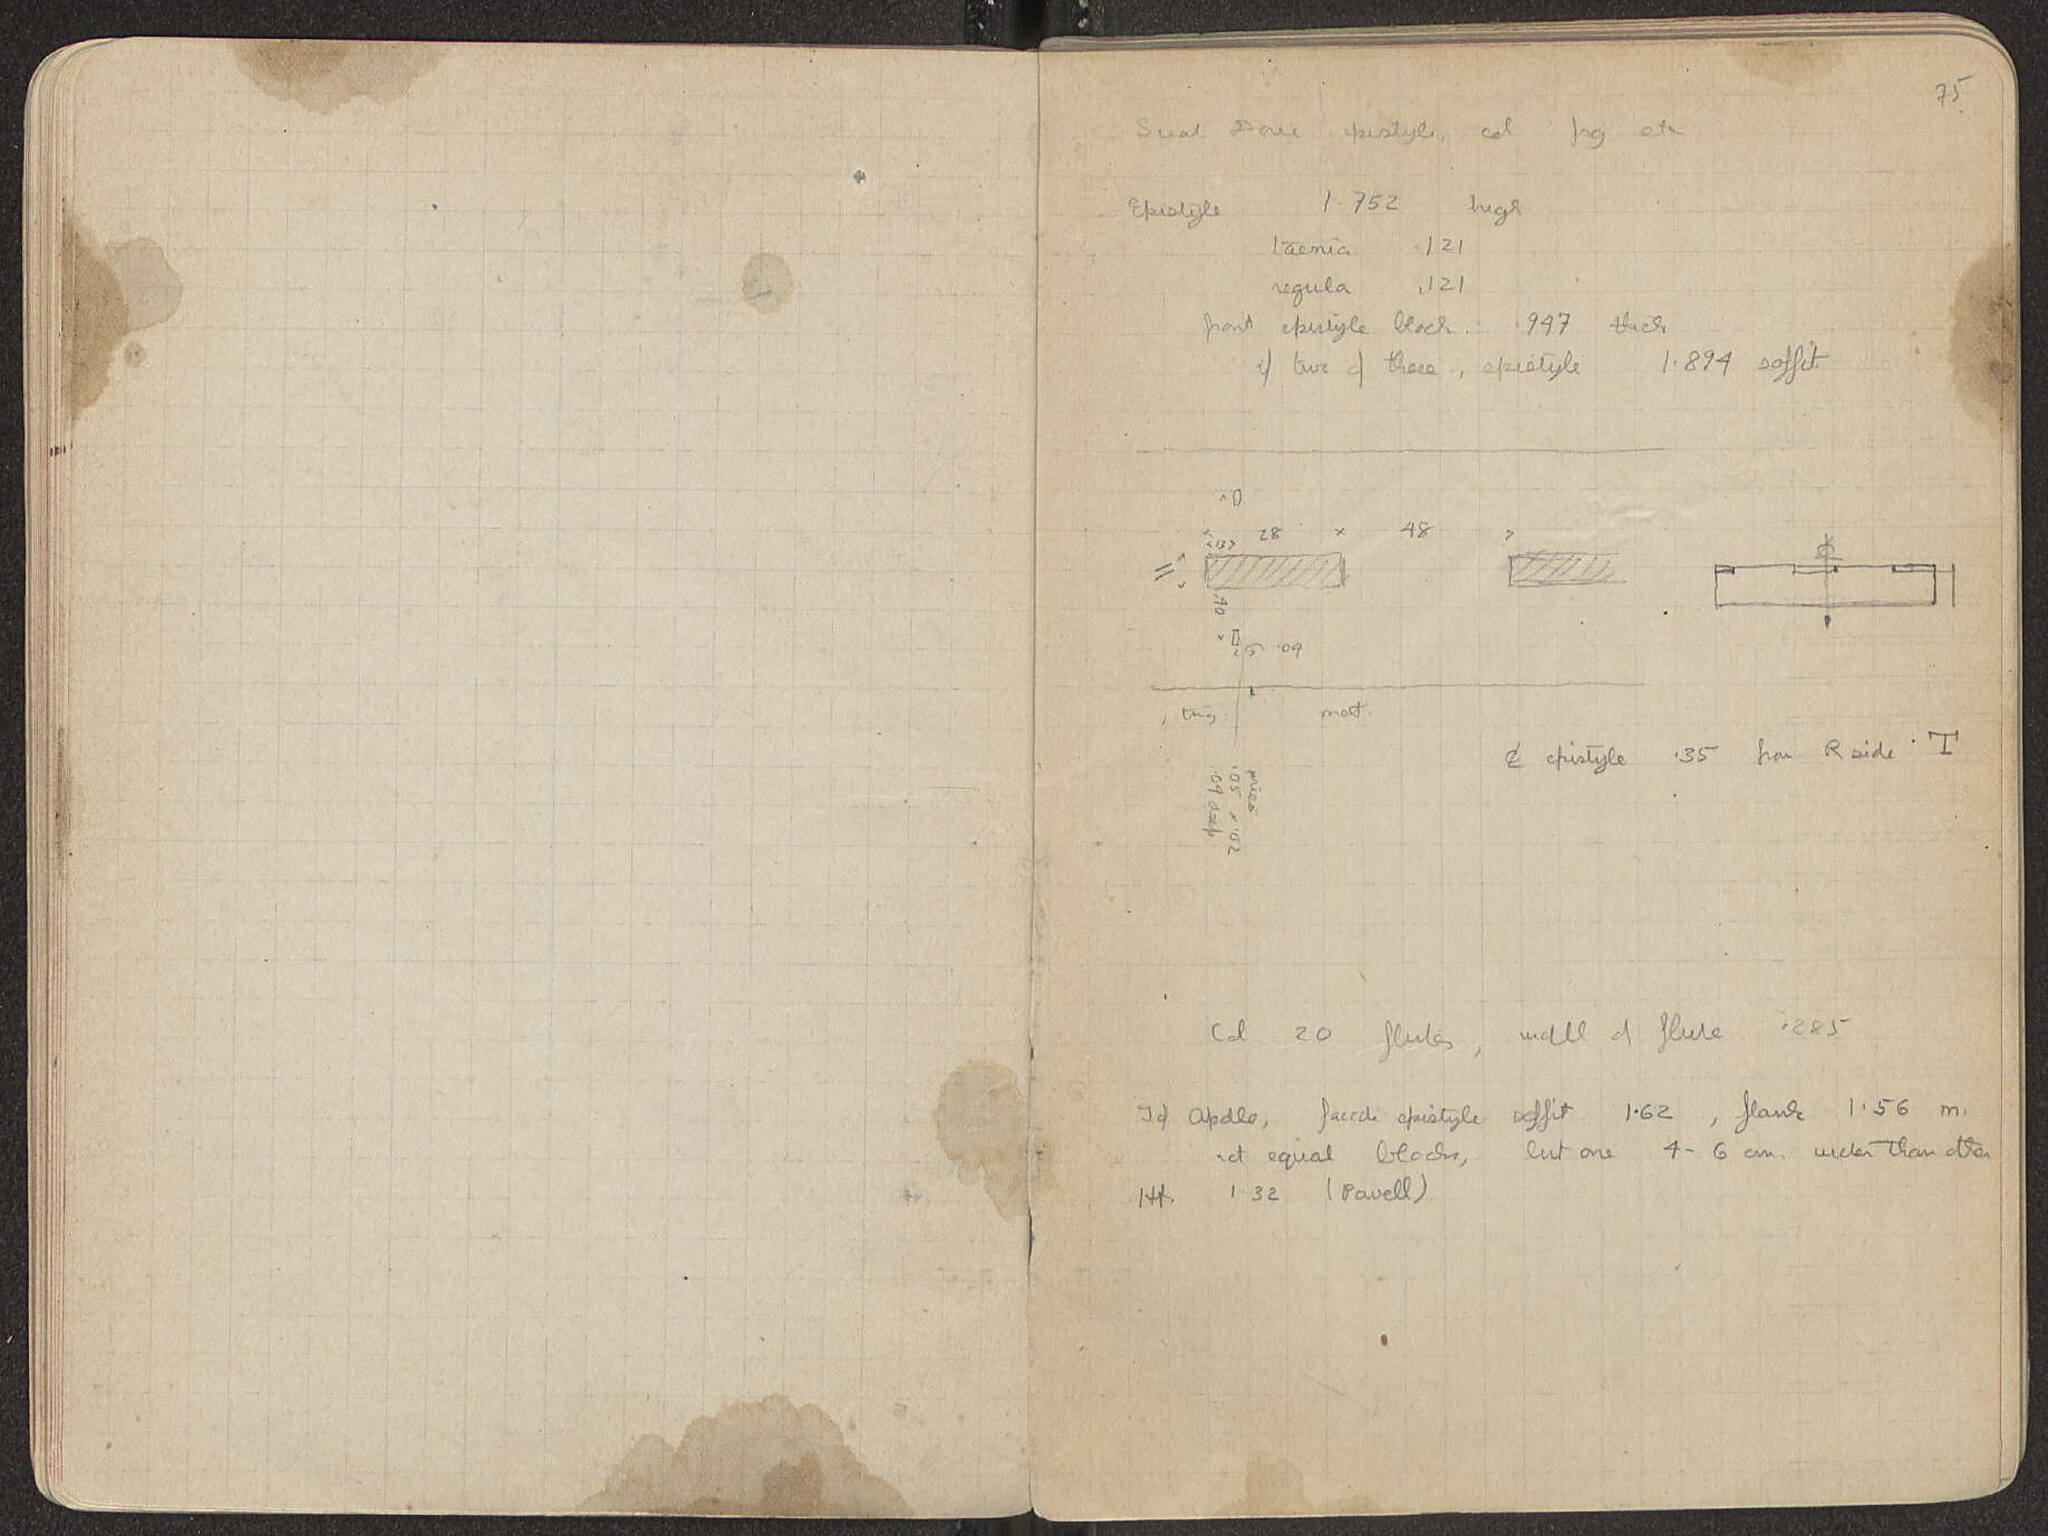 75
Great Doric epistyle, col frg etc
Epistyle 1.752 high
taenia .121
regula .121
front epistyle block .947 thick
if two of these, epistyle 1.894 soffit
28 × 48
<13>
11
.09
trig. met.
pries
.05 × .02
.09 deep
℄ epistyle .35 from R side T
Col 20 flutes, width of flute .285
T of Apollo, facade epistyle soffit 1.62, flank 1.56 m.
not equal blocks, but one 4-6 cm. wider than other
Ht. 1.32 (Powell)